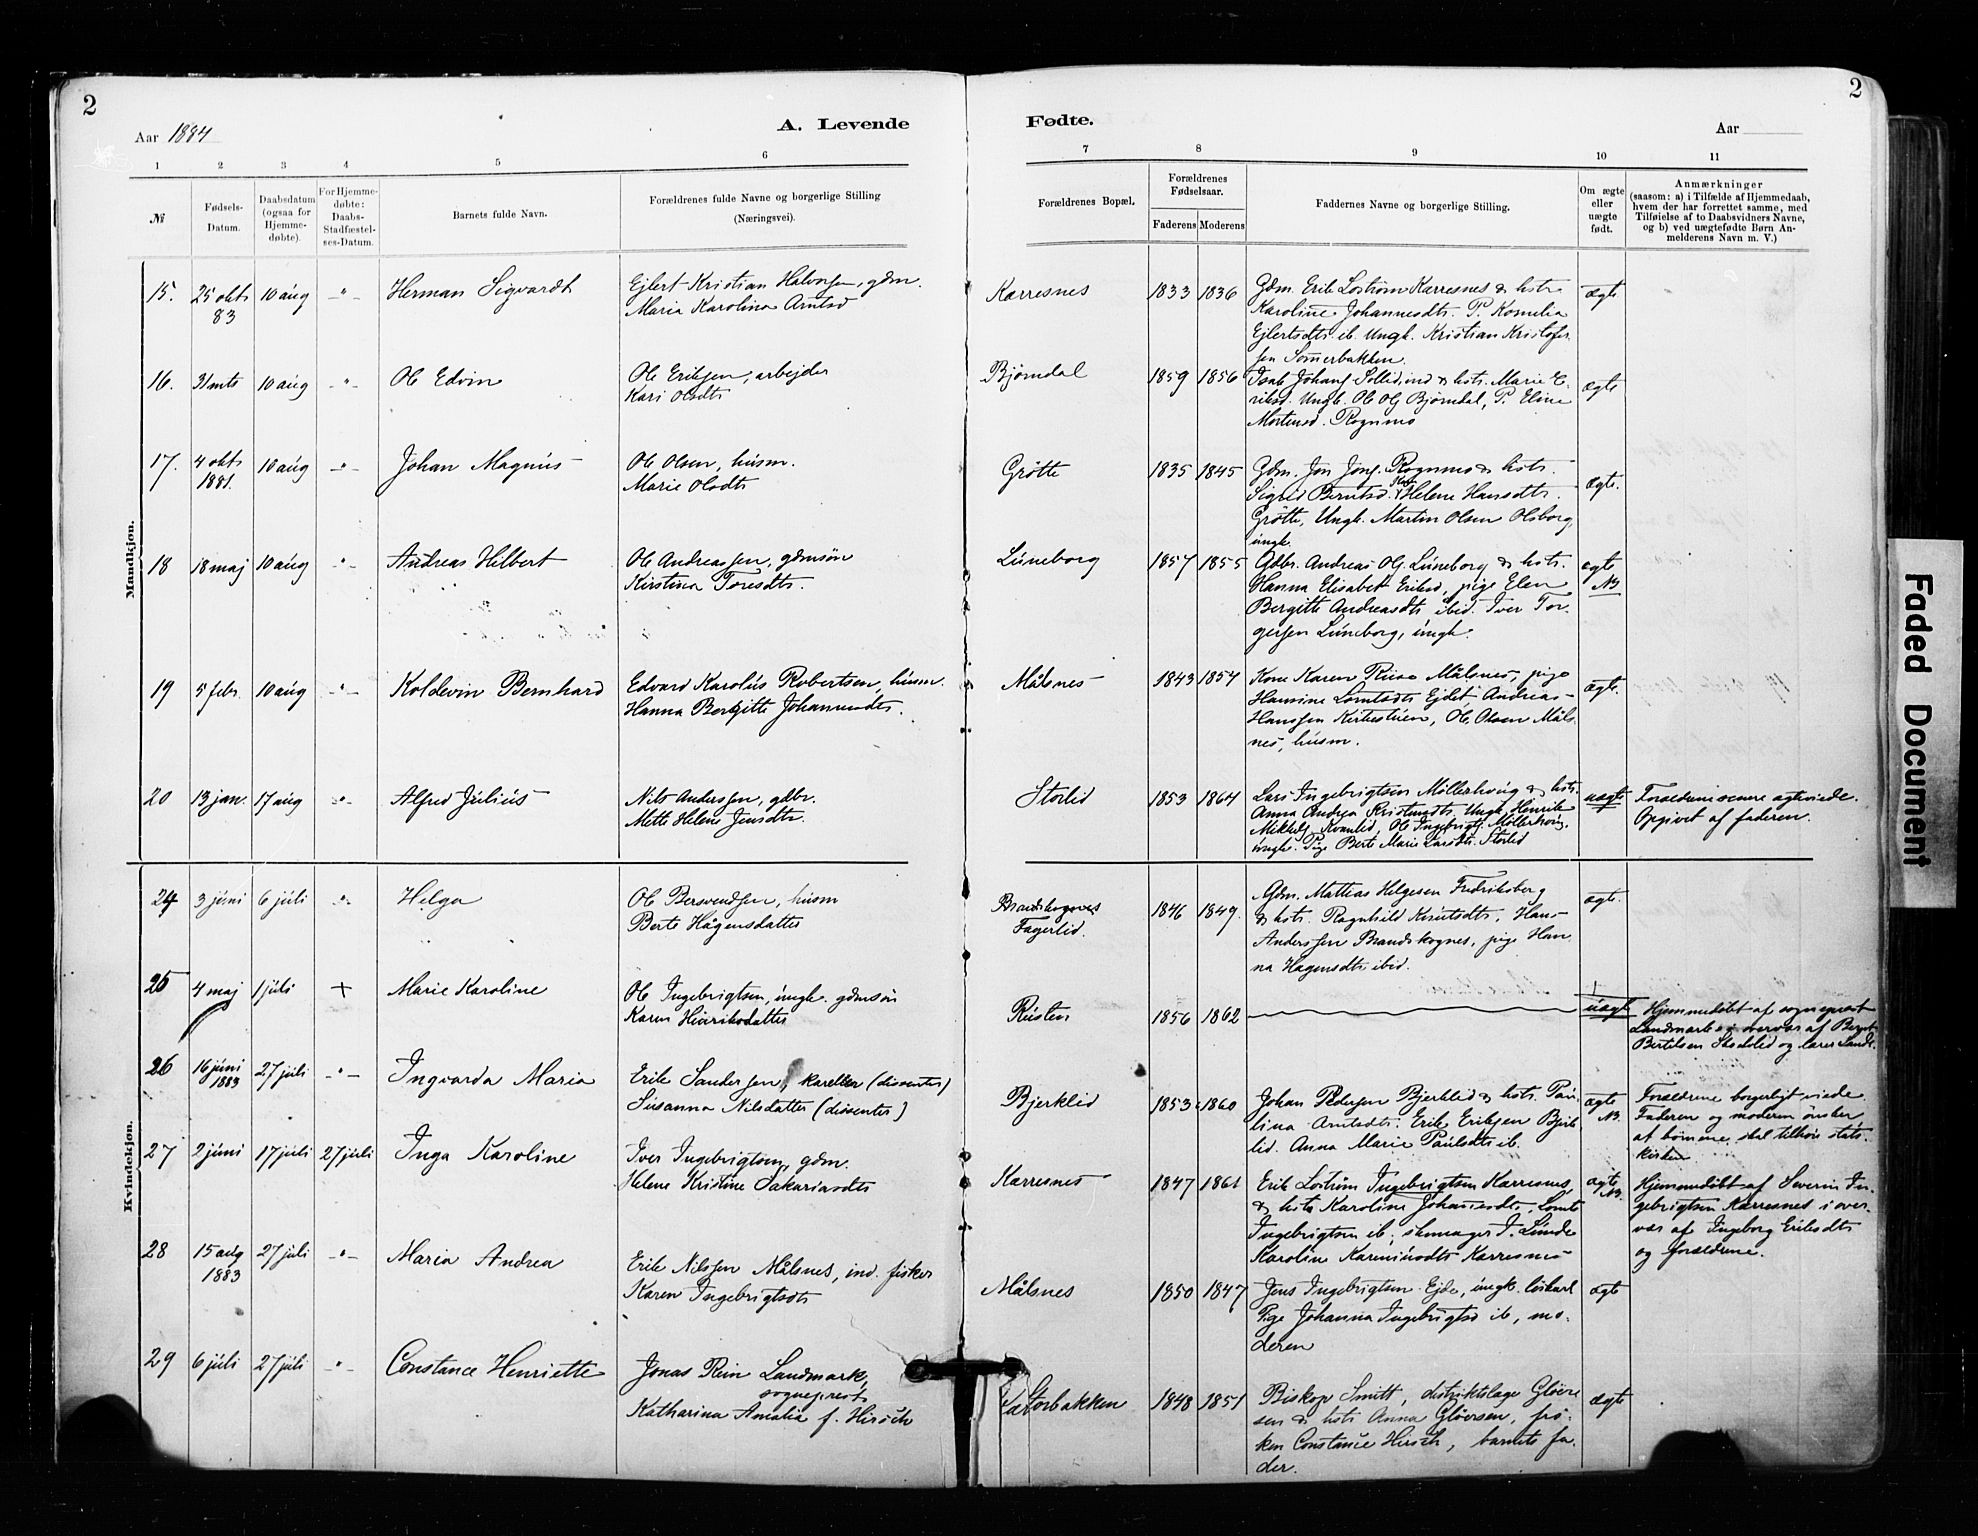 2
Aar 1884
A. Levende
Fødte.
Aar
2
1 2 3 4 5 6 7 8 9 10 11
№
Fødsels-Datum.
Daabsdatum (ogsaa for Hjemmedøbte).
For Hjemmedøbte: Daabs-Stadfæstelses-Datum.
Barnets fulde Navn.
Forældrenes fulde Navne og borgerlige Stilling
(Næringsvei).
Forældrenes Bopæl.
Forældrenes Fødselsaar.
Faderens Moderens
Faddernes Navne og borgerlige Stilling.
Om ægte eller uægte født.
Anmærkninger
(saasom: a) i Tilfælde af Hjemmedaab,
hvem der har forrettet samme, med
Tilføielse af to Daabsvidners Navne,
og b) ved uægtefødte Børn Anmelderens Navn m. V.)
Mandkjøn.
15. 25 okt 83 10 aug -"- Herman Sigvardt
Ejlert Kristian Halvorsen, gdm.
Maria Karolina Arntsd
Karresnes 1833 1836
Gdm. Erik Lostrøm Karresnes & hstr
Karoline Johannesdtr. P. Kornelia
Ejlertsdtr ib. Ungk. Kristian Kristofersen Somerbakken.
ægte
16. 31 mts 10 aug -"- Ole Edvin
Ole Eriksen, arbejder
Kari Olsdtr
Bjørndal 1859 1856
Isak Johans. Sollid, ind & hstr. Marie Eriksd. Ungk. Ole Ols Bjørndal, P. Eline
Mortensd. Rognmo
ægte
17. 4 okt 1881. 10 aug -"- Johan Magnus
Ole Olsen, husm.
Marie Olsdtr
Grøtte 1835 1845
Gdm. Jon Jons. Rognmo & hstr.
Sigrid Berntsd. Helene Hansdtr.
Grøtte, Ungk. Martin Olsen Olsborg,
ungk.
ægte.
18 18 maj 10 aug -"- Andreas Hilbert
Ole Andreassen, gdmsøn
Kirstina Toresdtr.
Luneborg 1857 1855
Gdbr. Andreas Ols. Luneborg & hstr.
Hanna Elisabet Eriksd, pige Elen
Bergitte Andreasdtr ibid. Iver Torgersen Luneborg, ungk.
ægte
NB.
19 5 febr. 10 aug -"- Koldevin Bernhard
Edvard Karolus Robertsen, husm.
Hanna Bergitte Johannesdtr.
Målsnes 1843 1857
Kone Karen Målsnes, pige
Hansine Lorntsdtr Ejdet, Andreas
Hanssen Kirkestuen, Ole Olsen Målsnes, husm.
ægte.
20 13 jan. 17 aug -"- Alfred Julius
Nils Anderssen, gdbr.
Mette Helene Jensdtr.
Storlid 1853 1864
Lars Ingebrigtsen Møllerhaug & hstr.
Anna Andrea Kristensdtr. Ungk. Henrik
Mikkels. Kvanlid, Ole Ingebrigts. Møllerhaug,
ungk. Pige Berte Marie Larsdtr. Storlid
uægte
Forældrene senere ægteviede.
Opgivet af faderen.
Kvindekjøn.
24 3 juni 6 juli -"- Helga
Ole Bersvendsen, husm
Berte Hågensdatter
Brandskognes
Fagerlid. 1846 1849.
Gdm. Mathias Helgesen Fredriksberg
& hstr. Ragnhild Knutsdtr. Hans
Anderssen Brandskognes, pige Hanna Hagensdtr ibid.
ægte.
25 4 maj 1 juli + Marie Karoline
Ole Ingebrigtsen, ungk. gdmsøn
Karen Henriksdatter
Rusten 1856 1862
uægte
Hjemmedøbt af sogneprest
Landmark i overvær af Bernt
Bertelsen Stadelid og lærer
26 16 juni 1883 27 juli -"- Ingvarda Maria
Erik Sanderssen, (dissenter)
Susanna Nilsdatter (dissenter)
Bjerklid 1853 1860
Johan Pedersen Bjerklid & hstr. Paulina Arntsdtr. Erik Eriksen Bjerklid. Anna Marie Paulsdtr ib.
ægte
NB.
Forældrene borgerligt viede.
Faderen og moderen ønsker
at børnene skal tilhøre statskirken
27 2 juni 17 juli 27 juli Inga Karoline
Iver Ingebrigtsen, gdm.
Helene Kristine Sakariasdtr
Karresnes 1847 1861
Erik Lostrøm Ingebrigtsen Karresnes,
& hstr Karoline Johannesdtr, Lorents
Ingebrigtsen ib, skomager J. Lunde
Karoline Kareniusdtr Karresnes
ægte
NB.
Hjemmedøbt af Severin Ingebrigtsen Karresnes i overvær af Ingeborg Eriksdtr
og forældrene.
28 15 aug 1883 27 juli -"- Maria Andrea
Erik Nilssen Målsnes, ind. fisker
Karen Ingebrigtsdtr
Målsnes 1850 1847
Jens Ingebrigtsen Ejde, ungk. løskarl
Pige Johanna Ingebrigtsd ib, moderen
ægte
29 6 juli 27 juli -"- Constance Henriette
Jonas Rein Landmark,
sogneprest
Katharina Amalia f. Hirsch
Storbakken 1848 1851
Biskop Smitt, distriktslæge Gløersen & hstr Anna Gløersen, frøken Constance Hirsch, barnets fader.
ægte
Faded Document